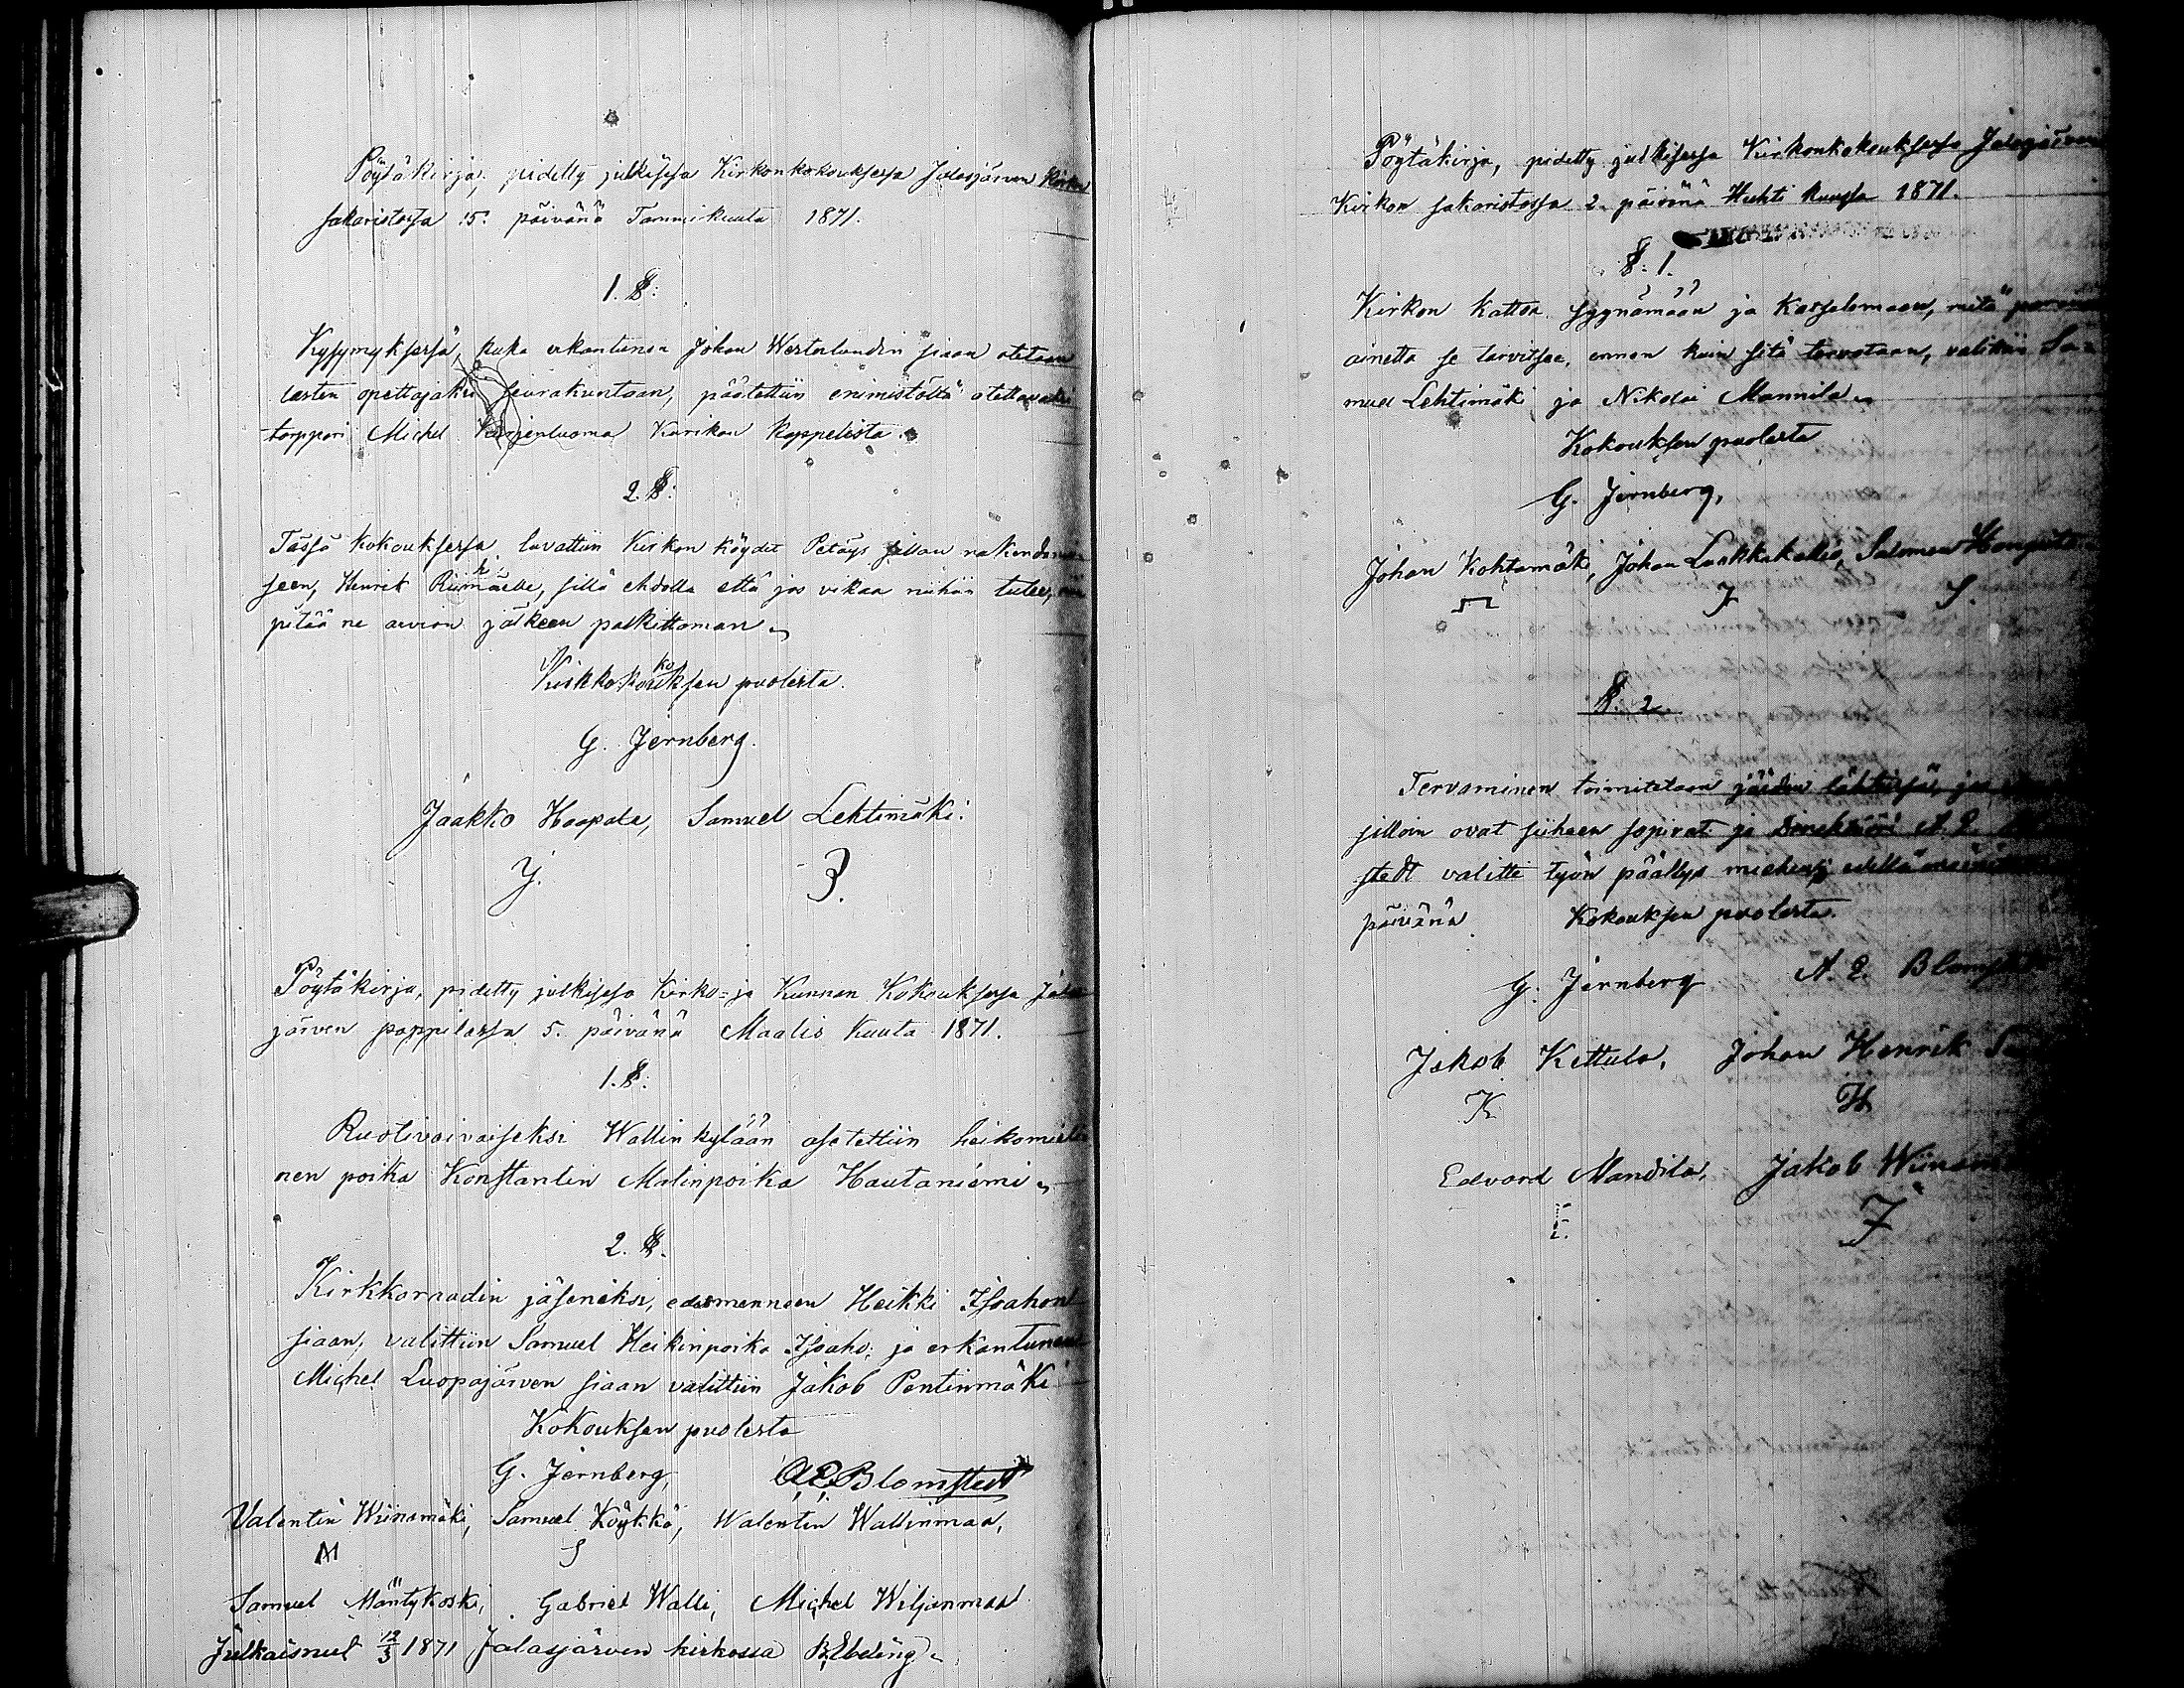 Pöytäkirja, pidetty julkisessa Kirkonkokouksessa Jalasjärven Kirkon
sakaristossa 15. päivänä Tammikuuta 1871.
1. §:
Kysymyksessä, kuka erkantunen Johan Westerlundin siaan otetaan
lasten opettajaksi seurakuntaan, päätettiin enimistöltä otettavaksi
torppari Michel Karjenluoma Kurikan kappelista.
2. §:
Tässä kokouksessa luvattiin Kirkon köydet Petäys sillan rakendami-
seen, Henrik Riihimäelle, sillä ehdolla että jos vikaa niihin tulee,
pitää ne arvion jälkeen palkittaman.
Kirkkokokouksen puolesta.
G. Jernberg.
Jaakko Haapala, Samuel Lehtimäki.
J. 3.
Pöytäkirja, pidetty julkisessa Kirko- ja Kunnan Kokouksessa Jalas
järven pappilassa 5. päivänä Maalis Kuuta 1871.
1. §.
Ruotivaivaiseksi Wallin kylään asetettiin heikomieli
nen poika Konstantin Matinpoika Hautaniemi.
2. §.
Kirkkoraadin jäseneksi, edesmenneen Heikki Isoahon
siaan, valittiin Samuel Heikinpoika Isoaho; ja erkantuneen
Michel Luopajärven siaan valittiin Jakob Pentinmäki
Kokouksen puolesta
G. Jernberg, A.E. Blomstedt
Valentin Wiinamäki, Samuel Köykkä, Walentin Wallinmaa,
M S
Samuel Mäntykoski, Gabriel Walli, Michel Wiljanmaa
Julkaisnut 12/3 1871 Jalasjärven kirkossa B. Ebeling.
Pöytäkirja, pidetty julkisessa Kirkonkokouksessa Jalasjärven
Kirkon sakaristossa 2. päivänä Huhti kuussa 1871.
§. 1.
Kirkon kattoa syynämään ja katselemaan, mitä
ainetta se tarvitsee, ennen kuin sitä tervataan, valittiin Sa-
muel Lehtimäki ja Nikolai Mannila.
Kokouksen puolesta
G. Jernberg,
Johan Kohtamäki, Johan Laskkakallio, Salomon
J S.
§. 2.
Tervaminen toimitetaan jäiden lähteissä, jos
silloin ovat siiheen sopivat ja A. E.
stedt valitti työn päällys mieheksi edellä
päivänä Kokouksen puolesta.
G. Jernberg A. E. Blomstedt
Jakob Kettula, Johan Henrik
K H
Edvard Mandila, Jakob Wiinamäki
E. J